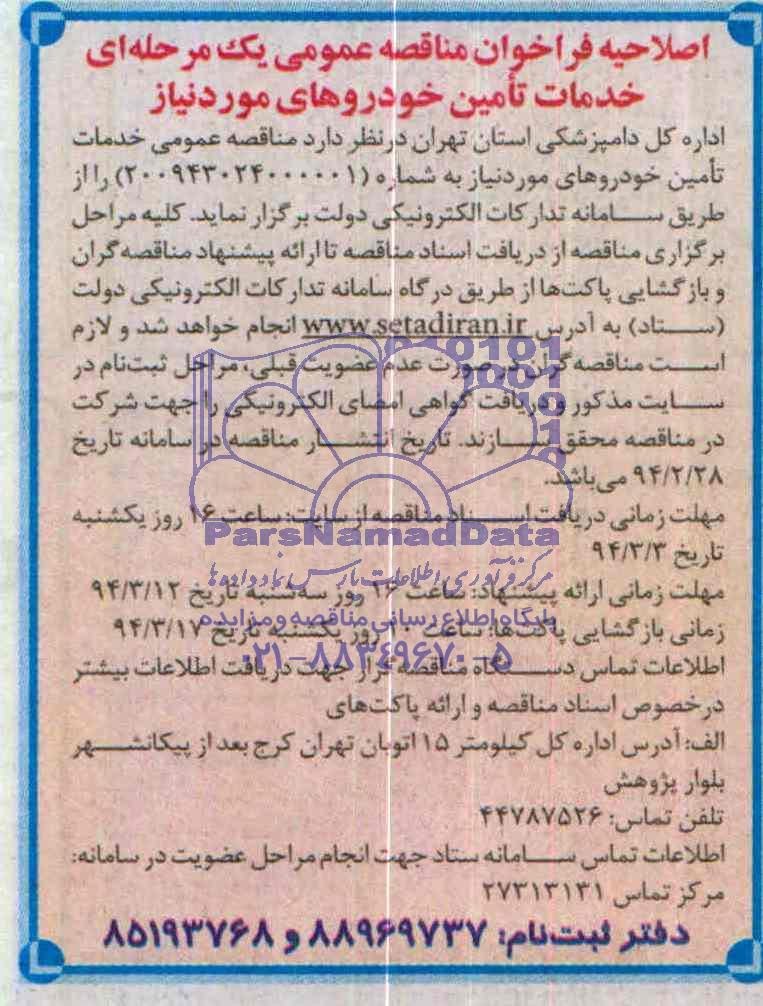 اصلاحیه فراخوان مناقصه عمومی یک مرحله‌ای
خدمات تأمین خودروهای موردنیاز
اداره کل دامپزشکی استان تهران درنظر دارد مناقصه عمومی خدمات
تأمین خودروهای موردنیاز به شماره (۲۰۰۹۴۳۰۲۴۰۰۰۰۰۱) را از
طریق سامانه تدارکات الکترونیکی دولت برگزار نماید. کلیه مراحل
برگزاری مناقصه از دریافت اسناد مناقصه تا ارائه پیشنهاد مناقصه‌گران
و بازگشایی پاکت‌ها از طریق درگاه سامانه تدارکات الکترونیکی دولت
(ستاد) به آدرس www.setadiran.ir انجام خواهد شد و لازم
است مناقصه‌گران درصورت عدم عضویت قبلی، مراحل ثبت‌نام در
سایت مذکور و دریافت گواهی امضای الکترونیکی را جهت شرکت
در مناقصه محقق سازند. تاریخ انتشار مناقصه در سامانه تاریخ
۹۴/۲/۲۸ می‌باشد.
مهلت زمانی دریافت اسناد مناقصه از سایت: ساعت ۱۶ روز یکشنبه
ParsNamadData
تاریخ ۹۴/۳/۳
مرکز فرآوری اطلاعات پارس نماد داده‌ها
مهلت زمانی ارائه پیشنهاد: ساعت ۱۶ روز سه‌شنبه تاریخ ۹۴/۳/۱۲
پایگاه اطلاع رسانی مناقصه و مزایده
زمانی بازگشایی پاکت‌ها: ساعت ۱۰ روز یکشنبه تاریخ ۹۴/۳/۱۷
۰۲۱-۸۸۳۴۹۶۷۰-۵
اطلاعات تماس دستگاه مناقصه‌گزار جهت دریافت اطلاعات بیشتر
درخصوص اسناد مناقصه و ارائه پاکت‌های
الف: آدرس اداره کل کیلومتر ۱۵ اتوبان تهران کرج بعد از پیکانشهر
بلوار پژوهش
تلفن تماس: ۴۴۷۸۷۵۲۶
اطلاعات تماس سامانه ستاد جهت انجام مراحل عضویت در سامانه:
مرکز تماس ۲۷۳۱۳۱۳۱
دفتر ثبت‌نام: ۸۸۹۶۹۷۳۷ و ۸۵۱۹۳۷۶۸